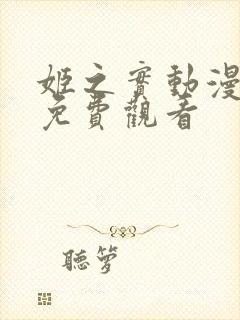 姬之實動漫
免費觀看
聽夢